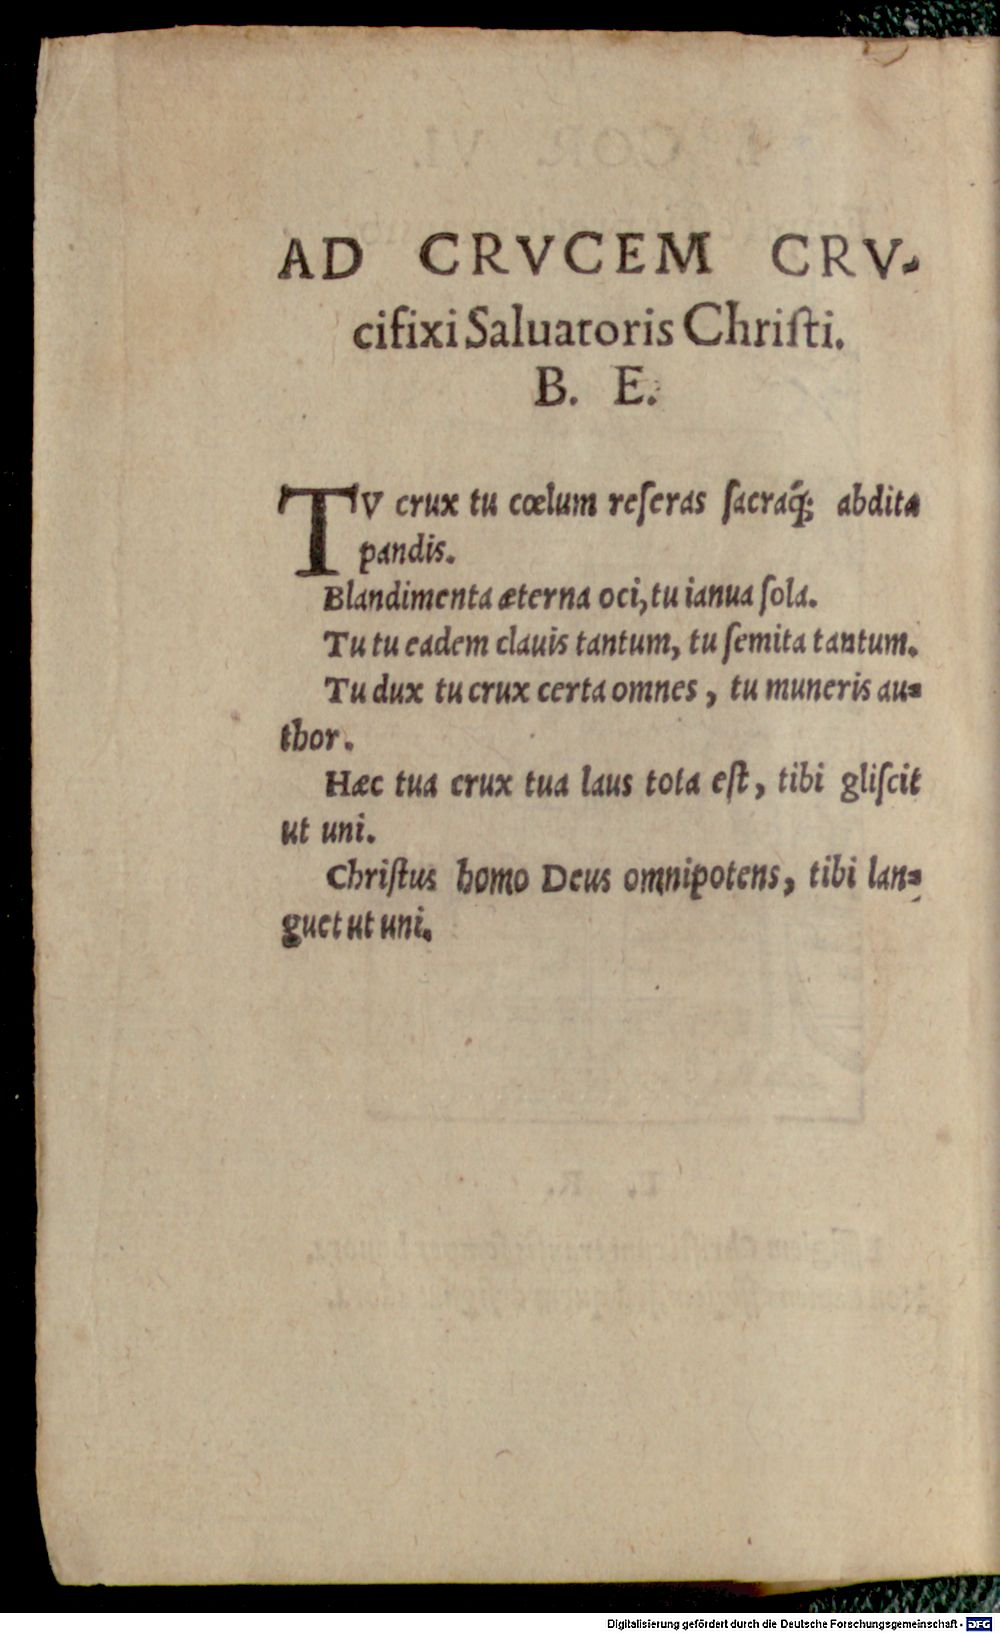 AD CRVCEM CRV-
cifixi Saluatoris Chriſti.
B. E.
TV crux tu cœlum reſeras ſacraq́; abdita
pandis.
Blandimenta æterna oci, tu ianua ſola.
Tu tu eadem clauis tantum, tu ſemita tantum.
Tu dux tu crux certa omnes, tu muneris au=
thor.
Hæc tua crux tua laus tota eſt, tibi gliſcit
ut uni.
Chriſtus homo Deus omnipotens, tibi lan=
guet ut uni.
Digitalisierung gefördert durch die Deutsche Forschungsgemeinschaft - DFG